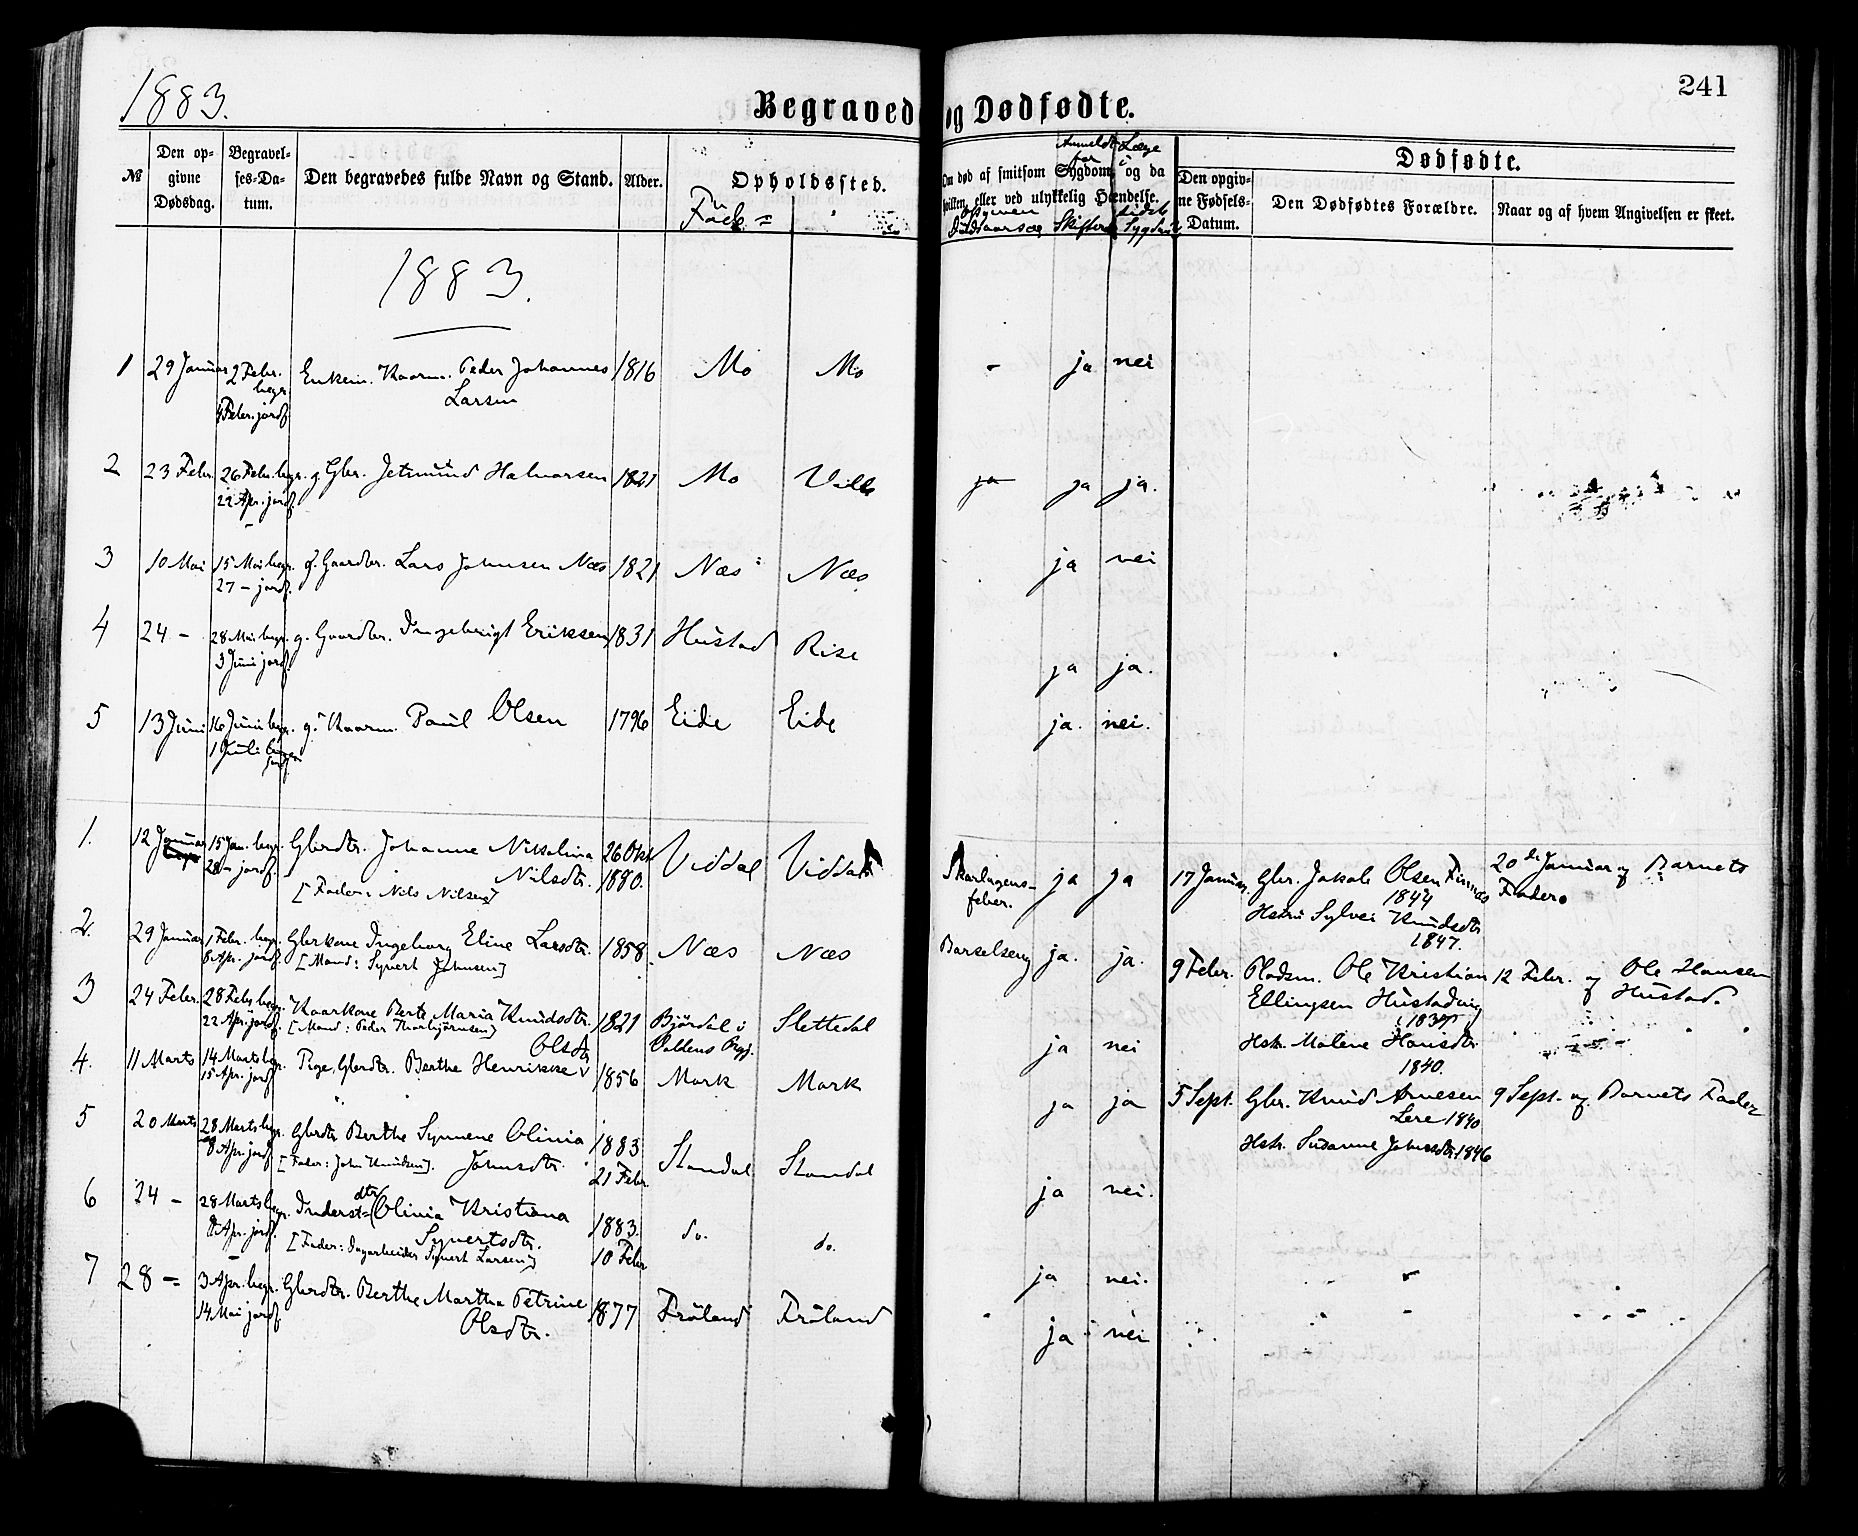 1883.
241
Begravede og Dødfødte.
№
Den op-
givne
Dødsdag.
Begravel-
ses-Da-
tum.
Den begravedes fulde Navn og Stand.
Alder.
Opholdssted.
Om død af smitsom Sygdom, og da
hvilken, eller ved ulykkelig Hændelse.
Anmeldt for Skifteret
Læge i sidste Sygdom
Dødfødte.
Den opgiv-
ne Fødsels-
Datum.
Den Dødfødtes Forældre.
Naar og af hvem Angivelsen er skeet.
1883.
1 29 Januar 2 Febr. begr. Enkem. Kaarm. Peder Johannes 1816 Mo Mo - ja nei
4 Febr. jordf. Larsen
2 23 Febr. 26 Febr. begr. g. Gbr. Jetmund Halvorsen 1821 Mo ja ja ja.
22 Apr. jordf.
3 10 Mai 15 Mai begr. g. Gaardbr. Lars Johnsen Næs 1821 Næs Næs ja nei
27 - jordf.
4 24 - 28 Mai begr. g. Gaardbr. Ingebrigt Eriksen 1831 Hustad Rise ja ja.
3 Juni jordf.
5 13 Juni 16 Juni begr. g. Kaarm. Paul Olsen 1796 Eide Eide ja. nei.
1 Juli jordf.
1. 12 Januar 15 Jan. begr. Gbrdtr. Johanne Nikolina 26 Okt Viddal Viddal Skarlagens- ja ja
28 - jordf. Nilsdtr. 1880. feber.
[Fader: Nils Nilsen]
17 Januar. Gbr. Jakob Olsen Finnes 20de Januar af Barnets
1844 Fader.
Hstr. Sylvei Knudsdtr
1847.
2. 29 Januar 1 Febr. begr. Gbrkone Ingeborg Eline Larsdtr. 1858. Næs Næs Barselseng ja. ja.
8 Apr. jordf. [Mand: Syvert Johnsen]
9 Febr. Pladsm. Ole Kristian 12 Febr. af Ole Hansen
Ellingsen Hustadvig Hustad.
Hstr. Malene Hansdtr
1840.
3 24 Febr. 28 Feb. begr. Kaarkone Berte Maria Knudsdtr. 1821 Bjørdal i Slettedal ja nei
22 Apr. jordf. [Mand: Peder Thorbjørnsen] Voldens Prgj.
4. 11 Marts 14 Marts begr. Pige, Gbrdtr. Berthe Henrikke Olsdtr 1856 Mork Mork ja ja
15 Apr. jordf
5 Sept. Gbr. Knud Arnesen 9 Sept. af Barnets Fader
Lere 1840
Hstr. Susanne Johnsdtr. 1846
5 20 Marts 28 Marts begr. Gbrdtr Berthe Synnene Olinia 1883 Standal Standal ja nei.
8 Apr. jordf [Fader: John Knudsen]. Johnsdtr. 21 Febr.
6 24 - 28 Marts begr. Inderst-dtr. Olinia Kristiana 1883. do. do. ja nei.
8 Apr. jordf. Syvertsdtr. 10 Febr
[Fader: Dagarbeider Syvert Larsen]
7 28 - 3 Apr. begr. Gbrdtr. Berthe Martha Petrine 1877 Frøland Frøland ja nei
14 Mai jordf Olsdtr.